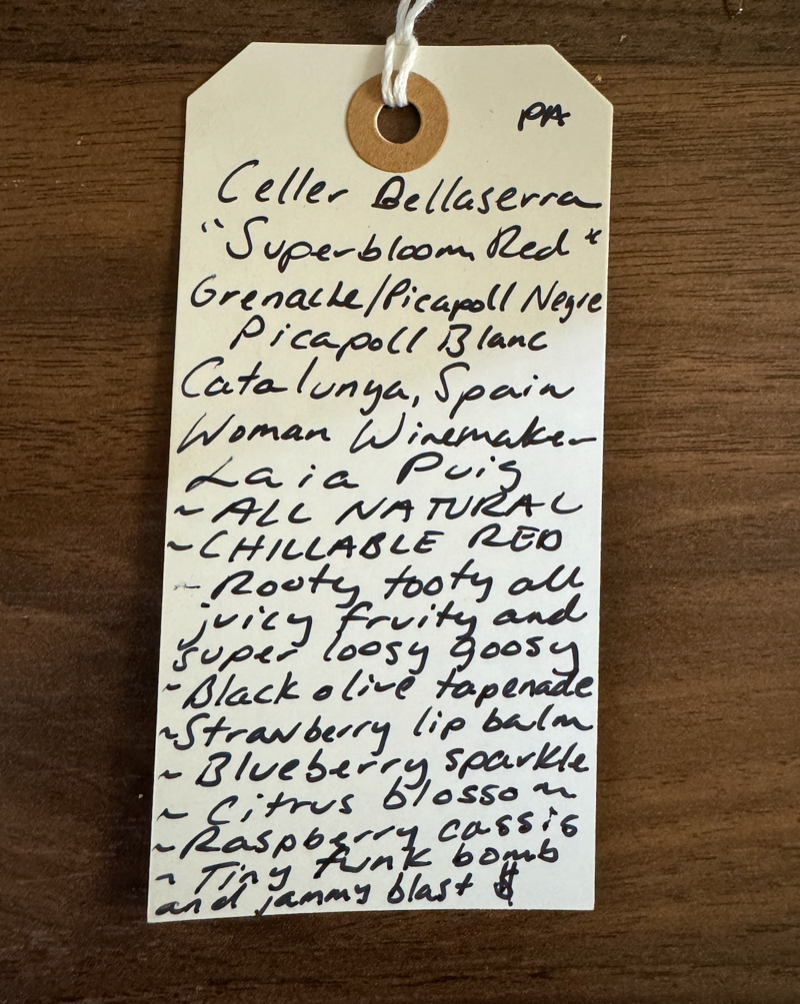 PA
Celler Bellaserra
"Superbloom Red"
Grenache/Picapoll Negre
Picapoll Blanc
Catalunya, Spain
Woman Winemaker
Laia Puig
~ ALL NATURAL
~ CHILLABLE RED
~ Rooty tooty all
juicy fruity and
super loosy goosy
~ Black olive tapenade
~ Strawberry lip balm
~ Blueberry sparkle
~ Citrus blossom
~ Raspberry cassis
~ Tiny funk bomb
and jammy blast $